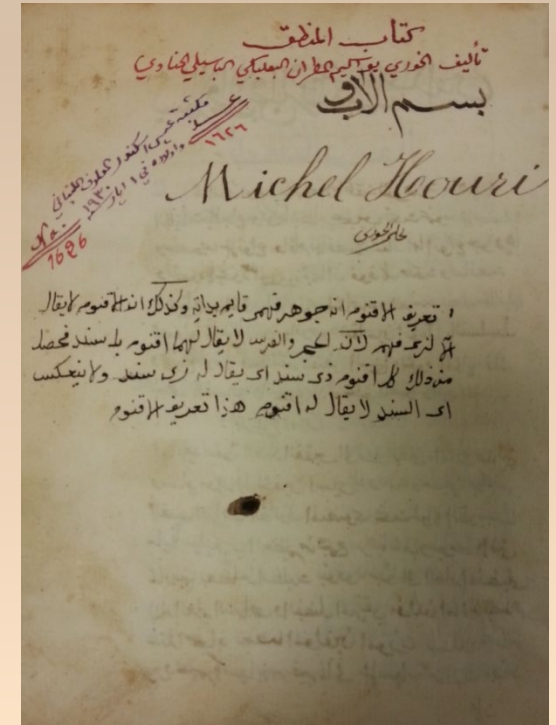 كتاب المنطق
تأليف الخوري يواكيم المطران البعلبكي الباسيلي الحناوي
بسم الاب و
مكتبة عيسى اسكندر المعلوف اللبناني
واولاده في ١ ايار ١٩٣٠
عدد
١٦٢٦
No.
1626
Michel Houri
الخوري
تعريف الاقنوم انه جوهر فهمي قايم بذاته وكذلك ان الاقنوم لا يقال
الا لذى فهم لان الحجر والفرس لا يقال لهما اقنوم بل سند فحصل
من ذلك كل اقنوم ذى سند اى يقال له ذى سند ولا ينعكس
اى السند لا يقال له اقنوم هذا تعريف الاقنوم